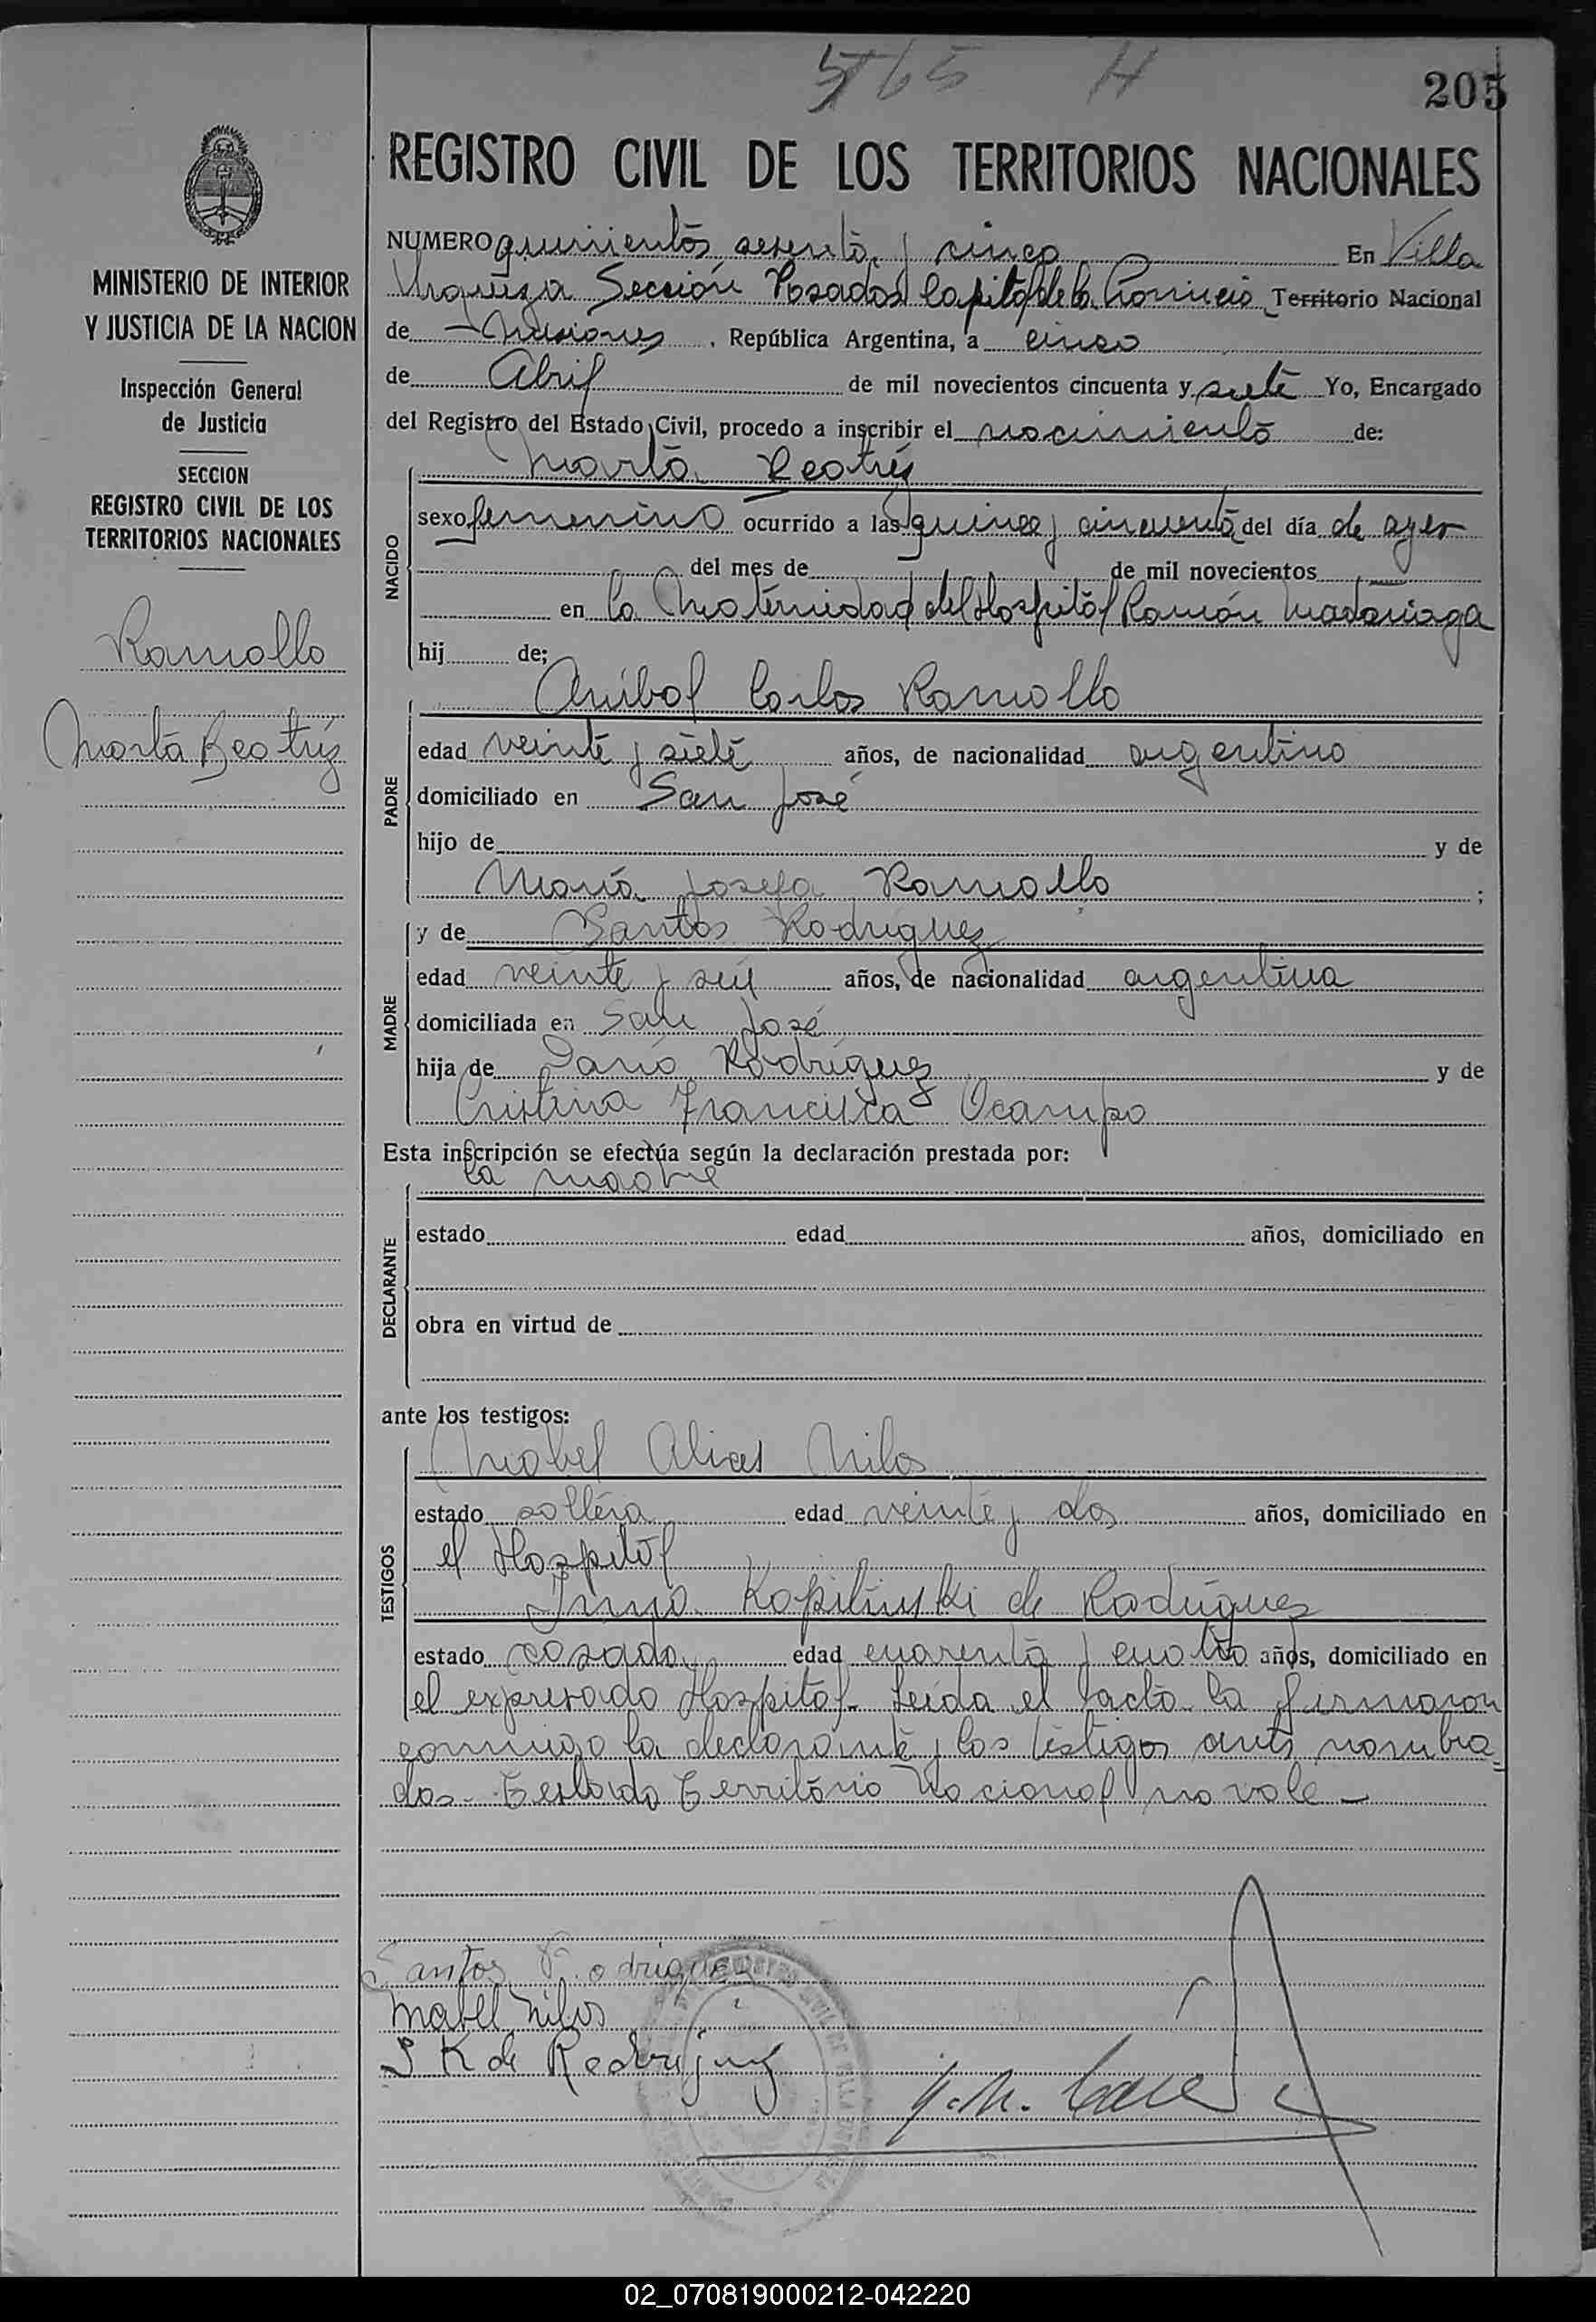 565 H
205
REGISTRO CIVIL DE LOS TERRITORIOS NACIONALES
MINISTERIO DE INTERIOR
Y JUSTICIA DE LA NACION
Inspección General
de Justicia
SECCION
REGISTRO CIVIL DE LOS
TERRITORIOS NACIONALES
Ramollo
Marta Beatriz
NUMERO quinientos sesenta y cinco En Villa
Urquiza Sección Posadas Capital de la Provincia Territorio Nacional
de Misiones, República Argentina, a cinco
de Abril de mil novecientos cincuenta y siete Yo, Encargado
del Registro del Estado Civil, procedo a inscribir el nacimiento de:
Marta Beatriz
NACIDO
sexo femenino ocurrido a las quince y cincuenta del día de ayer
del mes de de mil novecientos
en la Maternidad del Hospital Ramón Madariaga
hij de;
Anibal Carlos Ramollo
PADRE
edad veinte y siete años, de nacionalidad argentino
domiciliado en San José
hijo de y de
María Josefa Ramollo ;
MADRE
y de Santos Rodriguez
edad veinte y seis años, de nacionalidad argentina
domiciliada en San José
hija de Rodríguez y de
Cristina Francisca Ocampo
Esta inscripción se efectúa según la declaración prestada por:
la madre
DECLARANTE
estado edad años, domiciliado en
obra en virtud de
ante los testigos:
Mabel Nilos
TESTIGOS
estado soltera edad veinte y dos años, domiciliado en
el Hospital
de Rodríguez
estado casada edad cuarenta y cuatro años, domiciliado en
el expresado Hospital. Leída el acta la firmaron
conmigo la declarante y los testigos antes nombra=
dos. Testado Territorio Nacional no vale
Santos Rodriguez
Mabel Nilos
K de Rodriguez
02_070819000212-042220